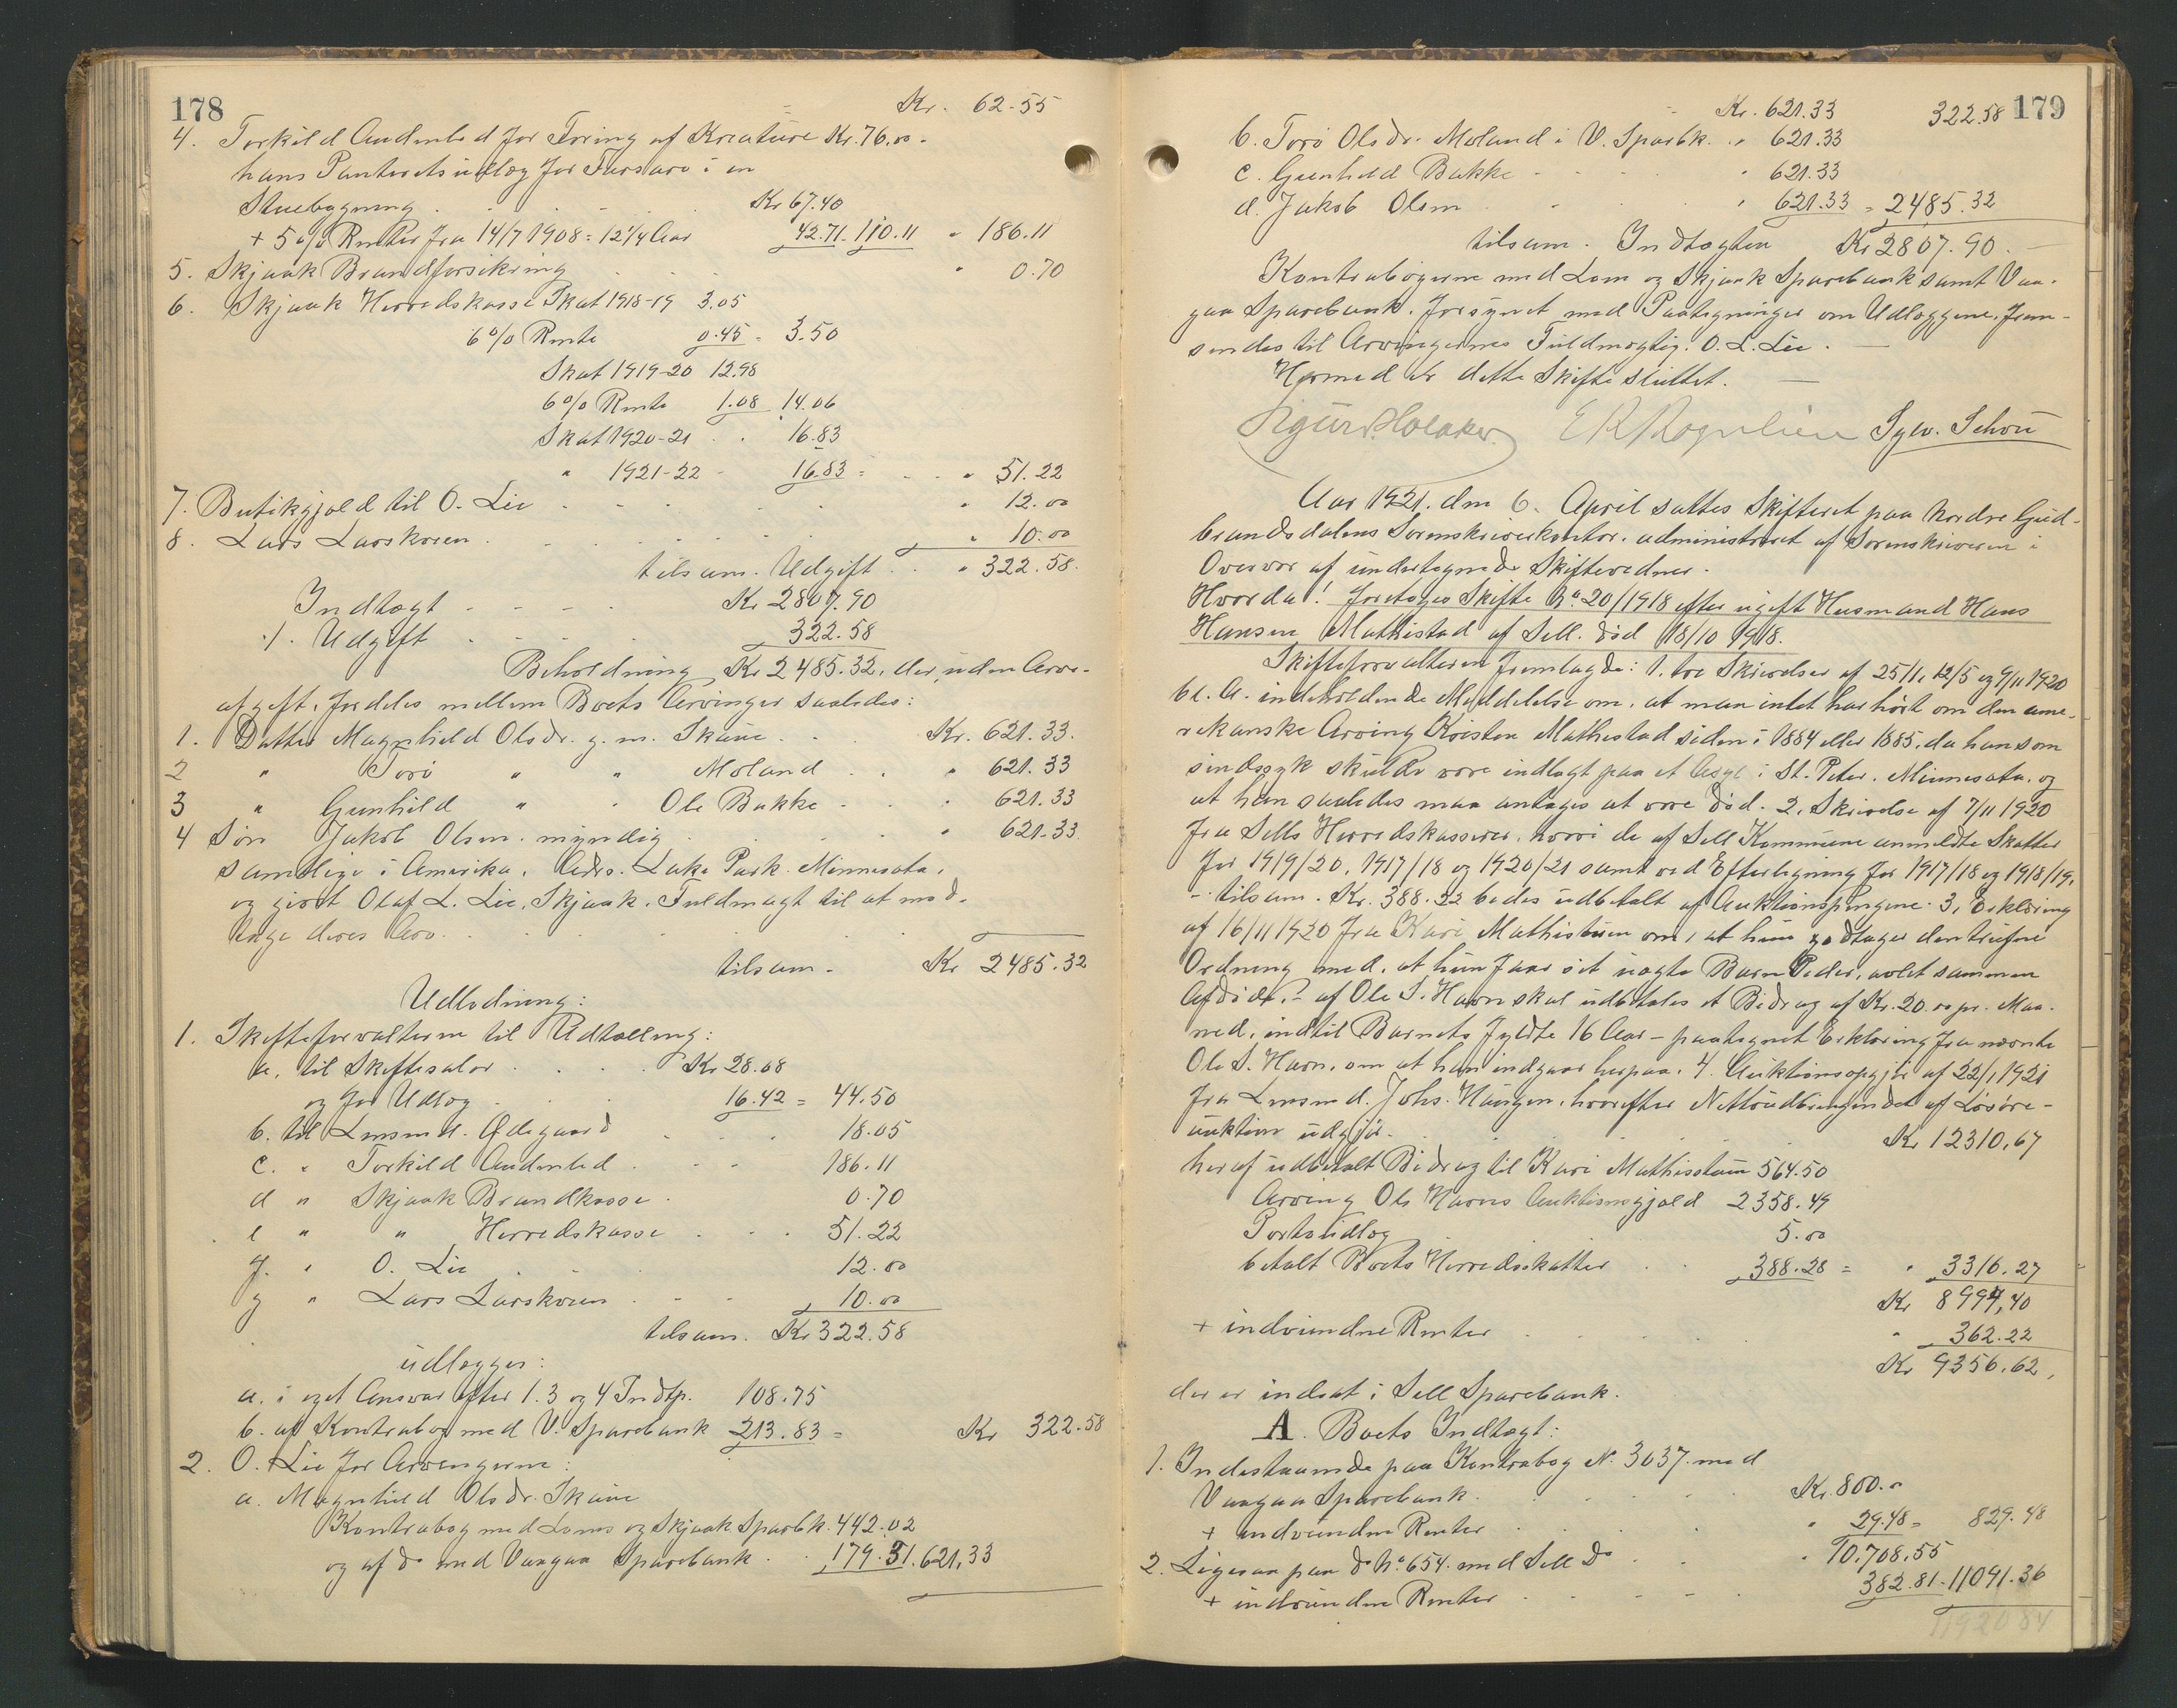 178
Kr. 62.55
4. Torkild Andmled for Foring af Kreature Kr. 76.00.
hans Panteretsudlæg for Farsarv i en
Stuebygning . . . Kr 67.40
+ 5 o/o Renter fra 14/7 1908 = 12 3/4 Aar 42.71. 110.11 " 186.11
5. Skjaak Brandforsikring . . . " 0.70
6. Skjaak Herredskasse Skat 1918-19 3.05
6 o/o Rente 0.45 = 3.50
Skat 1919-20 12.98
6 o/o Rente 1.08 14.06
Skat 1920-21 . . 16.83
" 1921-22 - 16.83 = . . " 51.22
7. Butikgjæld til O. Lie . . . " 12.00
8. Lars Larskoren . . . " 10.00
tilsam. Udgift . . " 322.58.
Indtægt . . . . Kr 2807.90
./. Udgift . . . . 322.58
Beholdning Kr 2485.32, der, uden Arve-
afgift, fordeles mellem Boets Arvinger saaledes:
1. Datter Magnhild Olsdr. g. m. Skaue . . Kr. 621.33.
2 " Torø " " Moland . . " 621.33
3 " Gunhild " " Ole Bakke . . . 621.33
4 Søn Jakob Olsen. myndig . . . " 621.33.
samtlige i Amerika. Adrs. Lake Park. Minnesota,
og givet Olaf L. Lie, Skjaak. Fuldmagt til at mod-
tage deres Arv. . . .
tilsam. Kr 2485.32
Udlodning:
1. Skifteforvalteren til Udtælling:
a. til Skiftesalær . . . . Kr 28.08
og for Udlæg . . . 16.42 = 44.50
b. til Lensmd. Ødegaard . . . 18.05
c. " Torkild Andmled . . . 186.11
d " Skjaak Brandkasse . 0.70
e " " Herredskasse . . . 51.22
f. " O. Lie . . . 12.00
g " Lars Larskoren . . . 10.00
tilsam. Kr 322.58
udlægges:
a. i eget Ansvar efter 1. 3 og 4 Indtp. 108.75
b. af Kontrabog med V. Sparebank 213.83 = Kr 322.58
2. O. Lie for Arvingerne:
a. Magnhild Olsdr. Skaue
Kontrabog med Loms og Skjaak Sparbk. 442.02
og af do med Vaagaa Sparebank . . 179.31. 621,33
179
Kr. 621.33 322.58
b. Torø Olsdr. Moland i V. Sparbk. . " 621.33
c. Gunhild Bakke . . . " 621.33
d. Jakob Olsen . . " 621.33 = 2485.32
tilsam. Indtægten Kr 2807.90.
Kontrabøgerne med Lom og Skjaak Sparebank samt Vaa-
gaa Sparebank. forsynet med Paategninger om Udlæggene. frem-
sendes til Arvingernes Fuldmægtig. O. L. Lie.
Hermed er dette Skifte sluttet.
Sylv. Schou
Aar 1921. den 6. April sattes Skifteret paa Nordre Gud-
brandsdalens Sorenskriverkontor. administreret af Sorenskriveren i
Overvær af undertegnede Skiftevidner.
Hvorda! foretages Skifte No 20/1918 efter ugift Husmand Hans
Hansen Mathistad af Sell. død 18/10 1918.
Skifteforvalteren fremlagde: 1. tre Skrivelser af 25/1, 12/5 og 9/11 1920
bl. A. indeholdende Meddelelse om, at man intet har hørt om den ame-
rikanske Arving Kristen Mathistad siden i 1884 eller 1885, da han som
sindssyk skulde være indlagt paa et Asyl i St. Peter. Minnesota. og
at han saaledes maa antages at være død. 2. Skrivelse af 7/11 1920
fra Sells Herredskasserer. hvori de af Sell Kommune anmeldte Skatter
for 1919/20, 1917/18 og 1920/21 samt ved Efterligning for 1917/18 og 1918/19,
- tilsam. Kr. 388.22 bedes udbetalt af Auktionspengene. 3. Erklæring
af 16/11 1920 fra Kari Mathistuen om, at hun godtager den trufne
Ordning med, at hun faar sit uægte Barn Peder, avlet sammen
Afdøde, - af Ole S. Havn skal udbetales et Bidrag af Kr. 20.00 pr. Maa-
ned, indtil Barnets fyldte 16 Aar - paategnet Erklæring fra nævnte
Ole S. Havn, om at han indgaar herpaa. 4. Auktionsopgjør af 22/1 1921
fra Lensmd. Johs. Haugen, hvorefter Nettoudbringendet af Løsøre-
auktion udgjør. . . . Kr 12310,67
heraf udbetalt Bidrag til Kari Mathisstuen 564.50
Arving Ole Havns Auktionsgjæld 2358.49
Portoudlæg 5.00
betalt Boets Herredsskatter . . 388.28 = " 3316.27
Kr 8994,40
+ indvundne Renter . . . " 362.22
Kr 9356.62,
der er indsat i Sell Sparebank.
A. Boets Indtægt:
1. Indestaaende paa Kontrabog No. 3037. med
Vaagaa Sparebank. . . . Kr. 800.00
+ indvundne Renter . . . " 29.48 = 829.48
2. Ligesaa paa do No. 654. med Sell do . . " 10.708.55
+ indvundne Renter . . . 382.81. 11091.36
11920 84